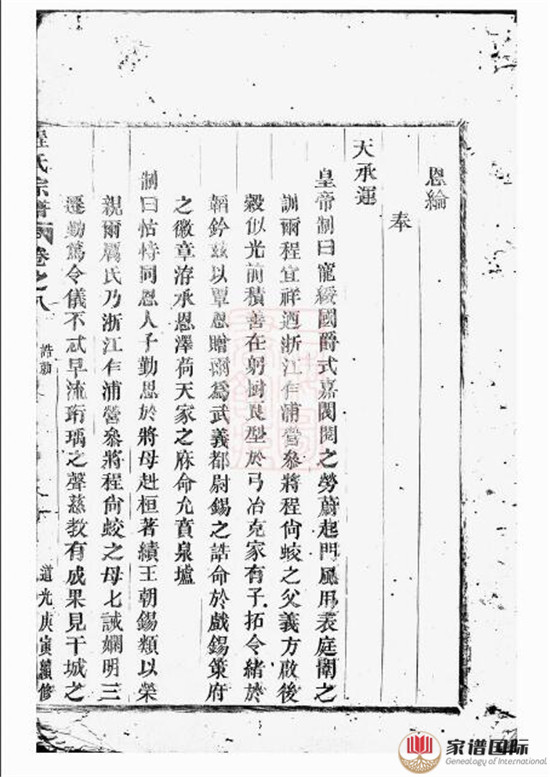 恩綸
奉
天承運
皇帝制曰寵綏國爵式嘉閥閱之勞蔚起門風用表庭闈之
訓爾程宜祥迺浙江乍浦營參將程尙蛟之父義方啟後
穀似光前積善在躬樹良型於弓冶克家有子拓令緒於
韜鈐茲以覃恩贈爾爲武義都尉錫之誥命於戲錫策府
之徽章洊承恩澤荷天家之庥命允賁泉壚
制曰怙恃同恩人子勤思於將母赳桓著績王朝錫類以榮
親爾屬氏乃浙江乍浦營參將程尙蛟之母七誡嫻明三
遷勤篤令儀不忒早流珩瑀之聲慈教有成果見干城之
程氏宗譜 卷之八
誥勅
道光庚寅續修
家谱国际
Genealogy of International